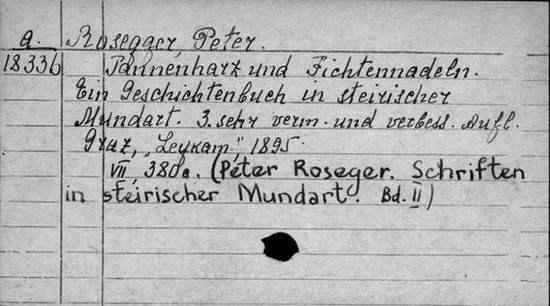 a. Rosegger, Peter.
18336 Tannenharz und Fichtennadeln.
Ein Geschichtenbuch in steirischer
Mundart. 3. sehr verm. und verbess. Aufl.
Graz, „Leykam" 1895.
VII, 380 s. (Peter Roseger. Schriften
in steirischer Mundart. Bd. II)